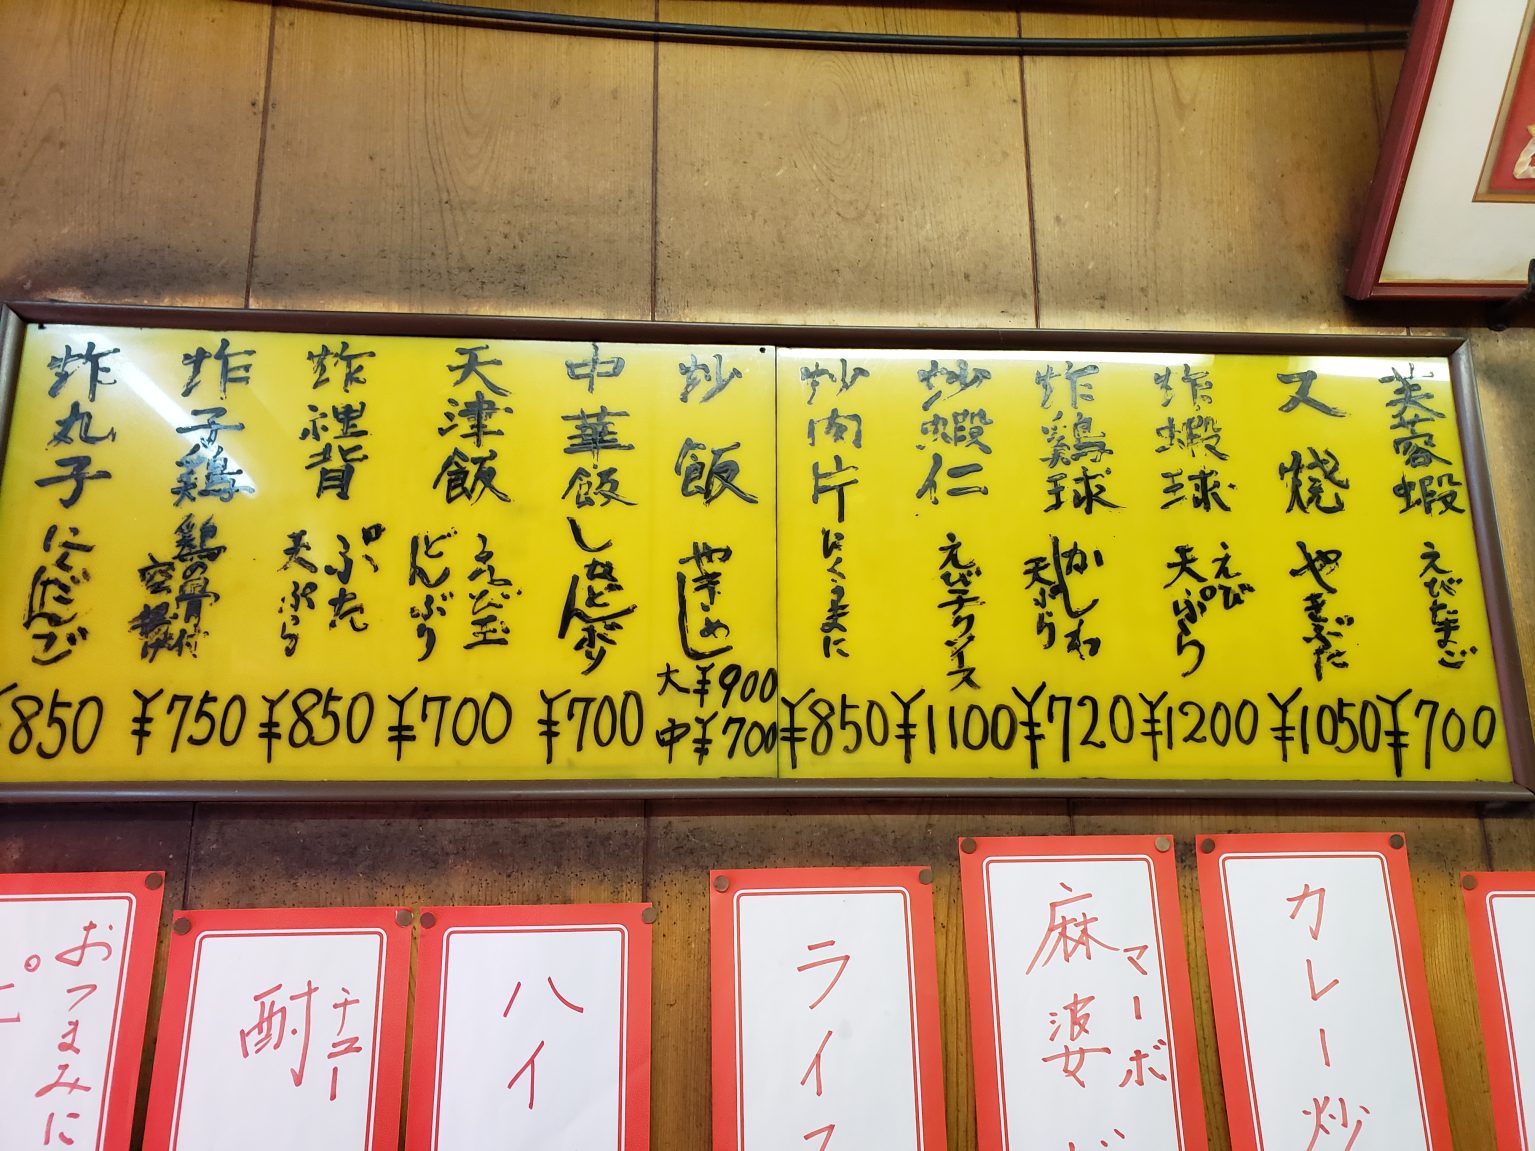 芙蓉蝦
えびたまご
¥700
叉焼
やきぶた
¥1050
炸蝦球
えび
天ぷら
¥1200
炸鶏球
かしわ
天ぷら
¥720
炒蝦仁
えびチクソース
¥1100
炒肉片
にくうまに
¥850
炒飯
やきめし
大¥900
中¥700
中華飯
しなどんぶり
¥700
天津飯
えび玉
どんぶり
¥700
炸裡背
天ぷら
¥850
炸子鶏
鶏の骨付
空揚げ
¥750
炸丸子
にくだんご
¥850
カレー炒
マーボ
麻婆
ライス
ハイ
チュー
酎
おつまみに